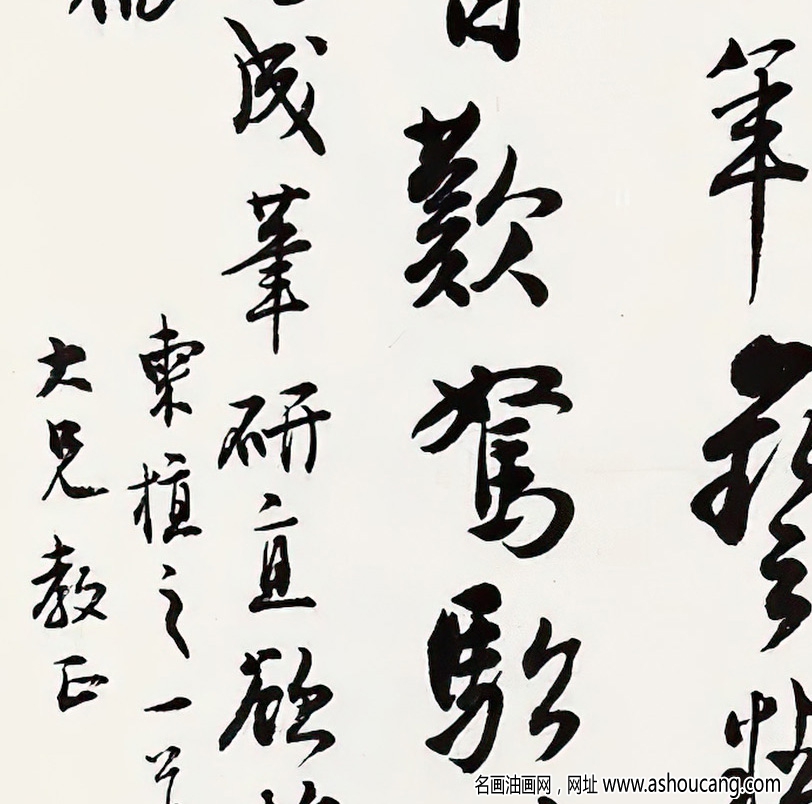 年藝
歎駑駘
成筆研直欲
東植之一
大兄教正
名画油画网，网址 www.ashoucang.com